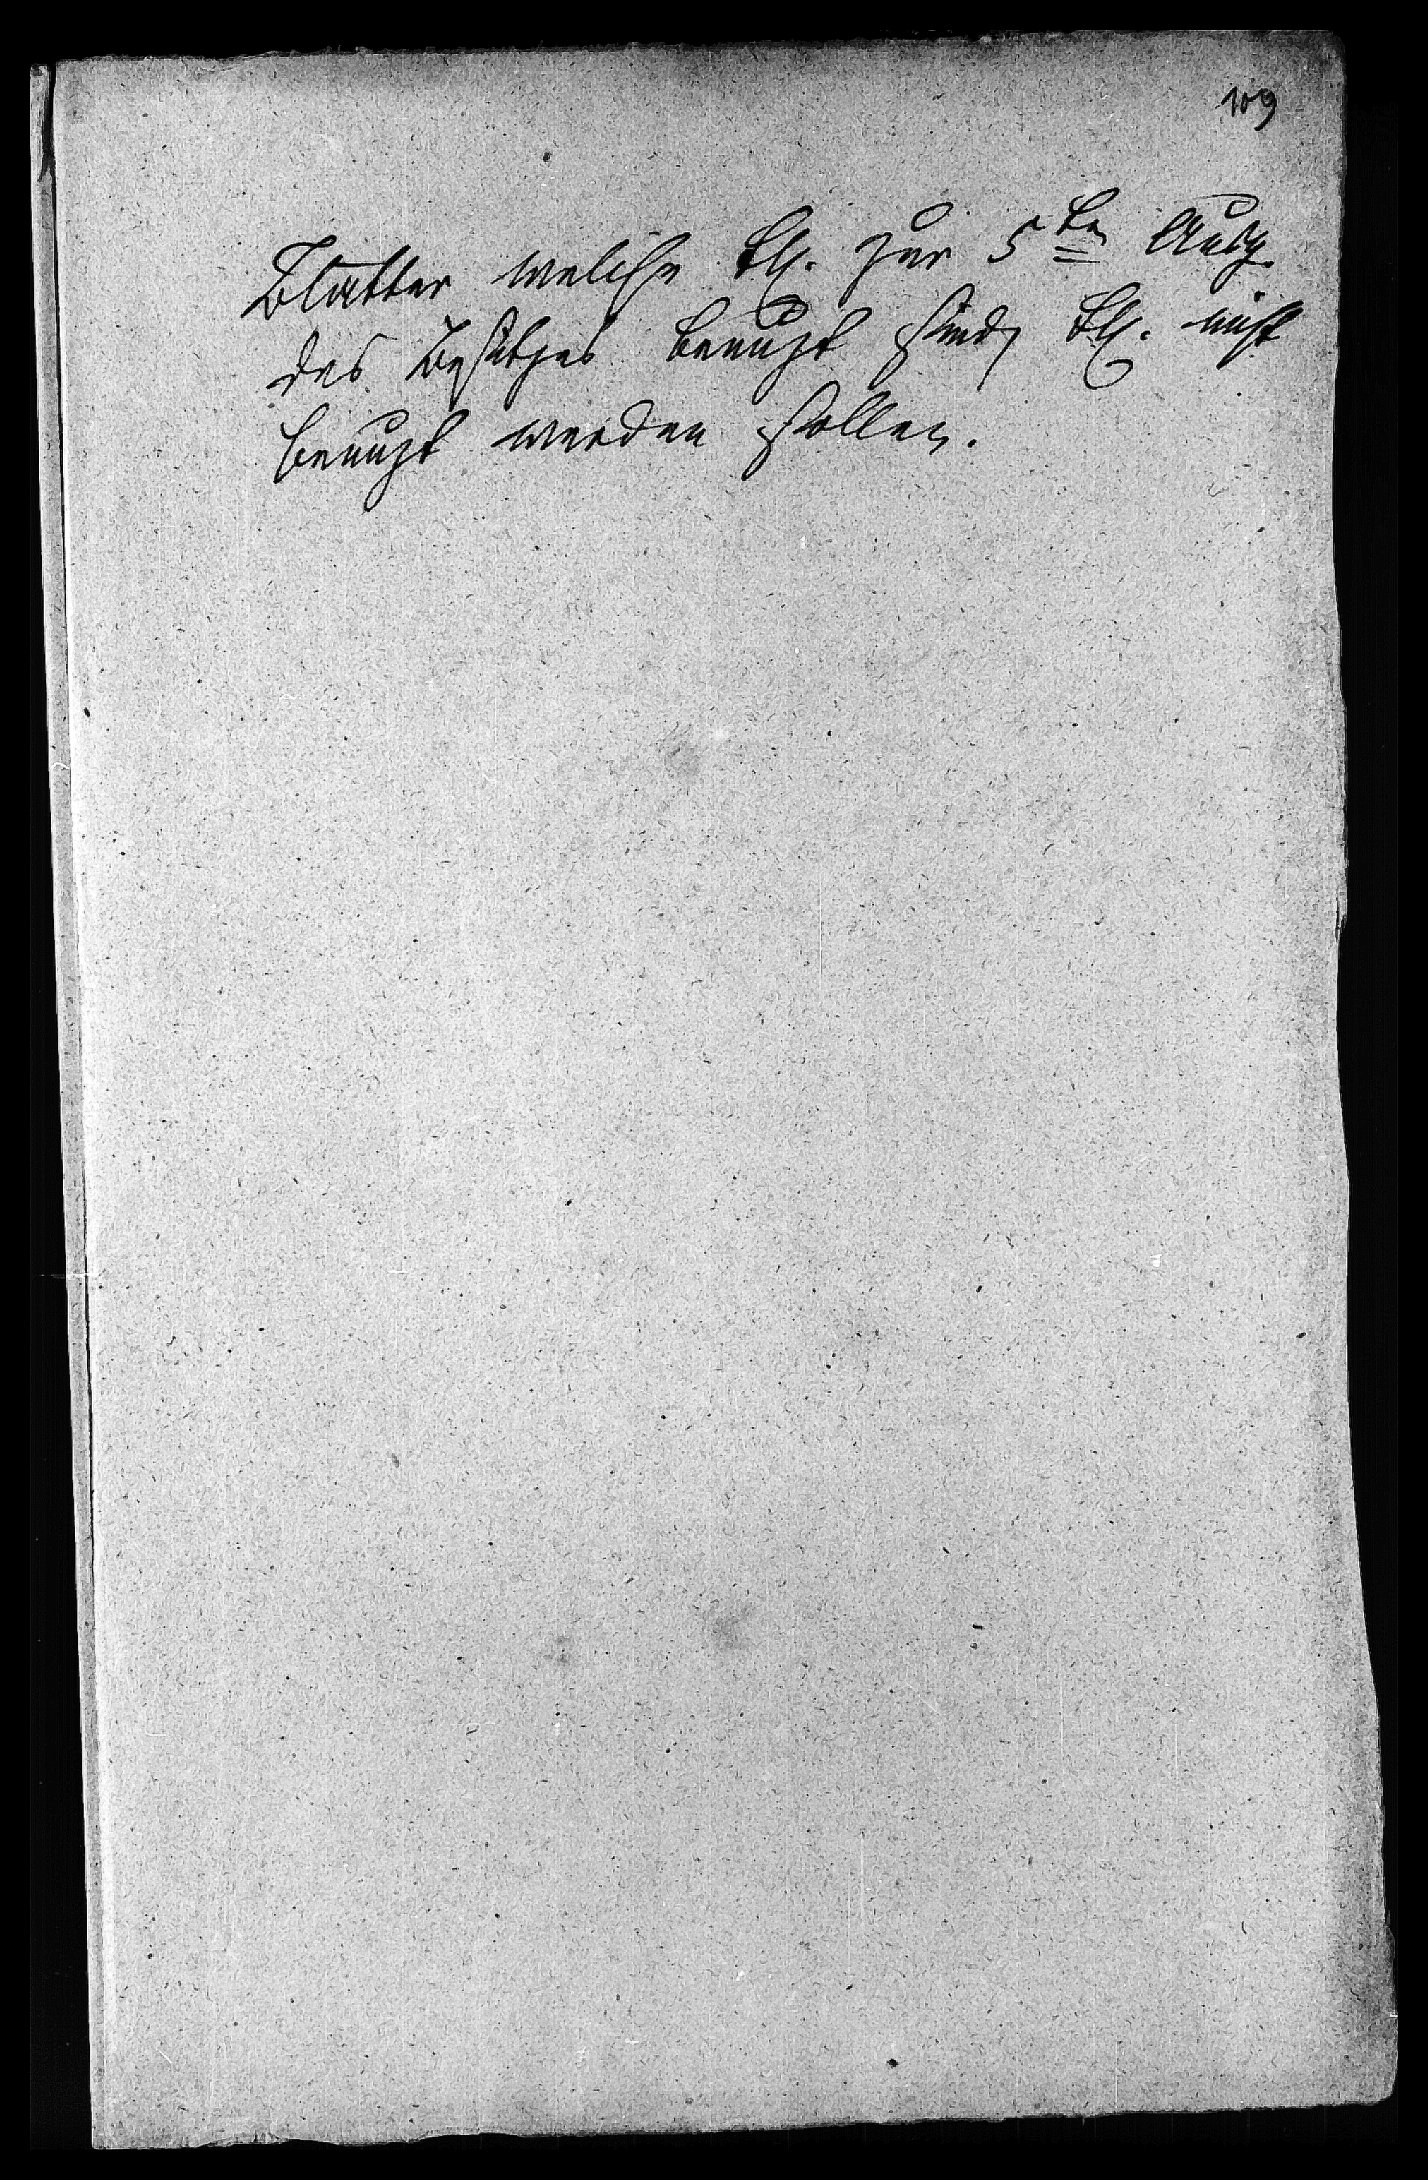 109
Blätter welche th. zur 5ten Ausg.
des Besitzes benuzt sind, th. nicht
benuzt werden sollen.